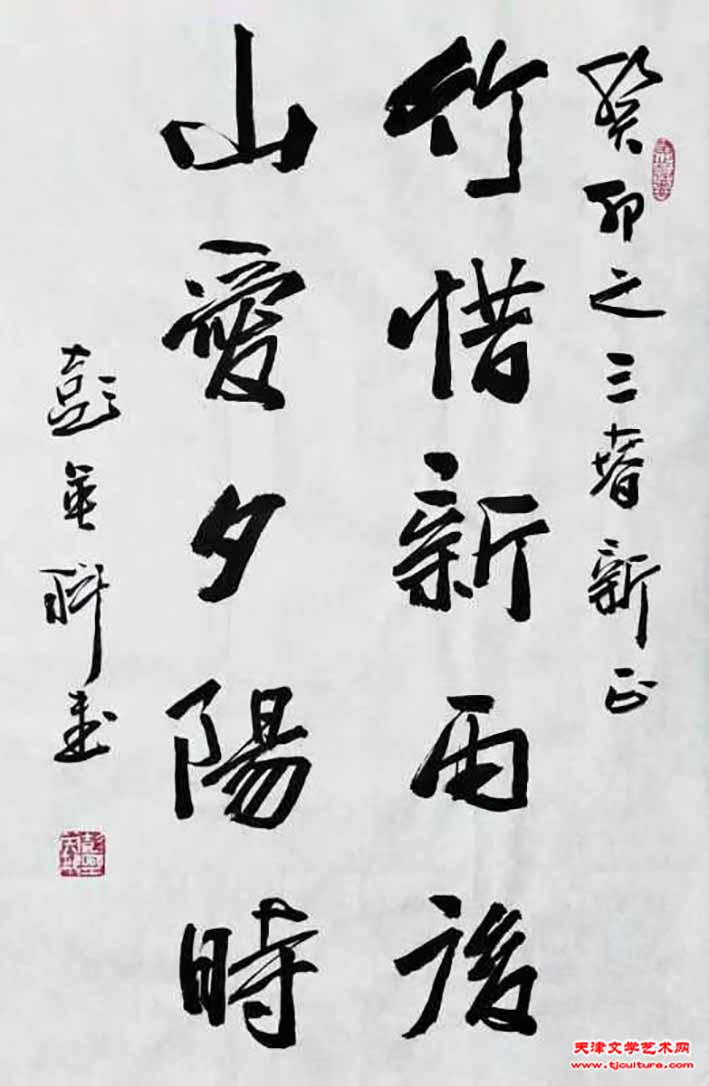 癸卯之三春新正
竹惜新雨後
山愛夕陽時
彭英科書
天津文学艺术网
www.tjculture.com